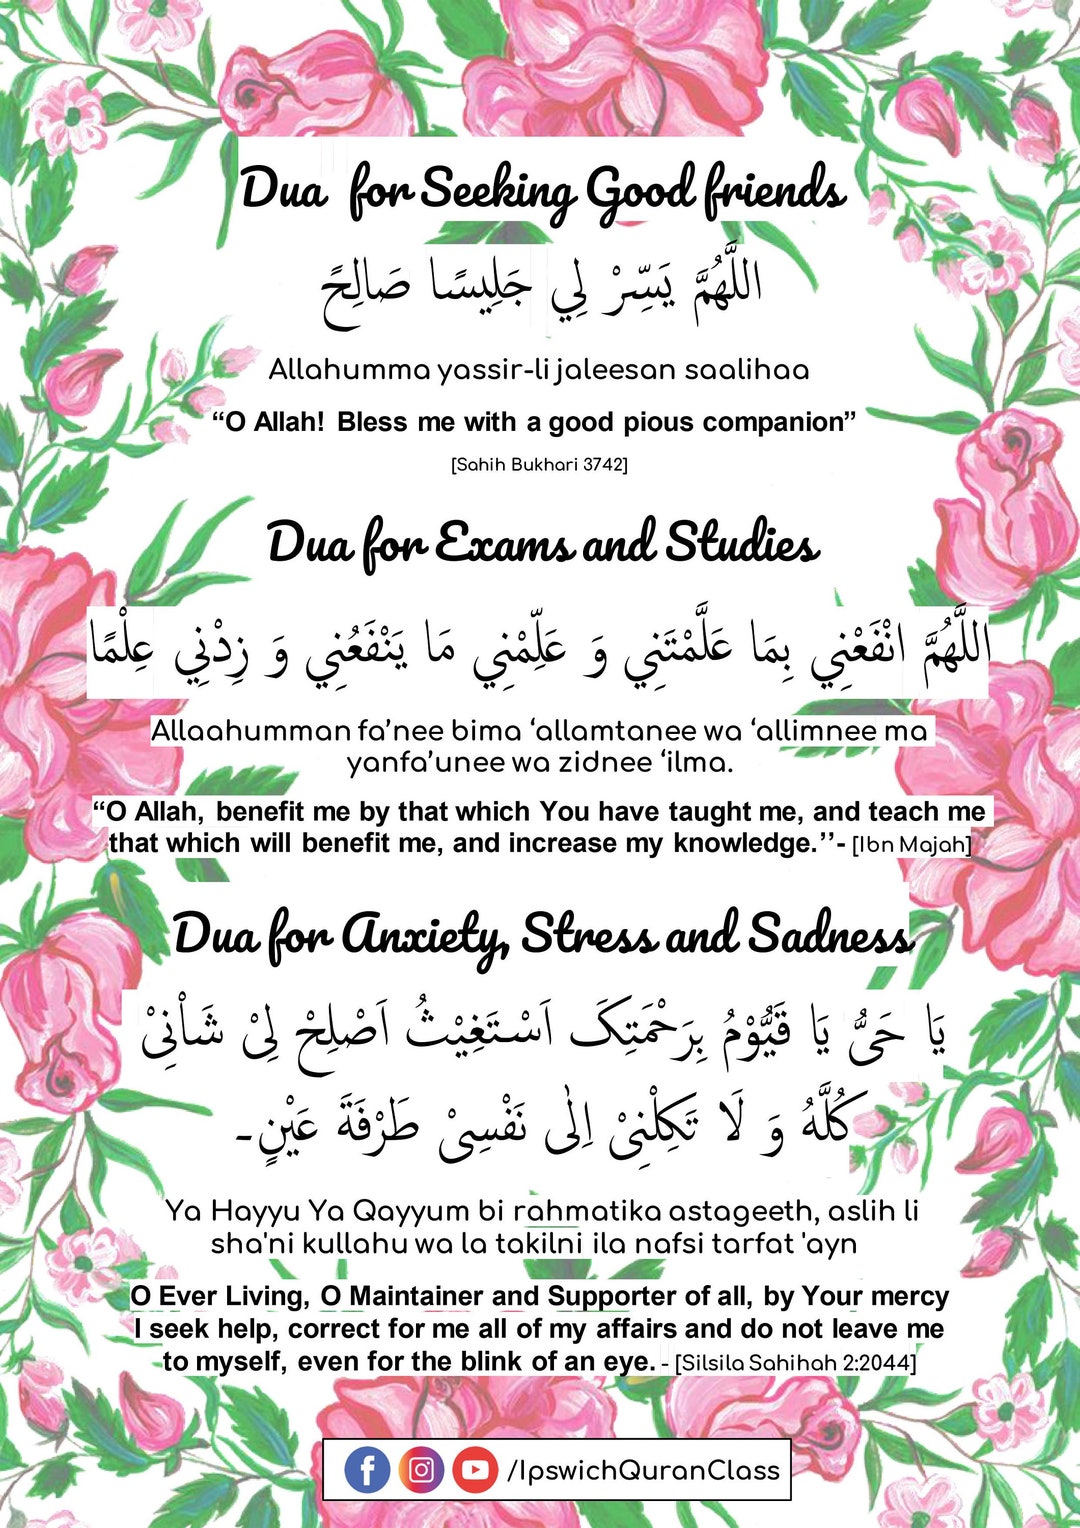 Dua for Seeking Good friends
اللَّهُمَّ يَسِّرْ لِي جَلِيسًا صَالِحً
Allahumma yassir-li jaleesan saalihaa
“O Allah! Bless me with a good pious companion”
[Sahih Bukhari 3742]
Dua for Exams and Studies
اللَّهُمَّ انْفَعْنِي بِمَا عَلَّمْتَنِي وَ عَلِّمْنِي مَا يَنْفَعُنِي وَ زِدْنِي عِلْمًا
Allaahumman fa’nee bima ‘allamtanee wa ‘allimnee ma
yanfa’unee wa zidnee ‘ilma.
“O Allah, benefit me by that which You have taught me, and teach me
that which will benefit me, and increase my knowledge.’’- [Ibn Majah]
Dua for Anxiety, Stress and Sadness
يَا حَىُّ يَا قَيُّوْمُ بِرَحْمَتِکَ اَسْتَغِيْثُ اَصْلِحْ لِىْ شَاْنِىْ
کُلَّهُ وَ لَا تَکِلْنِىْ اِلٰى نَفْسِىْ طَرْفَةَ عَيْنٍ۔
Ya Hayyu Ya Qayyum bi rahmatika astageeth, aslih li
sha'ni kullahu wa la takilni ila nafsi tarfat 'ayn
O Ever Living, O Maintainer and Supporter of all, by Your mercy
I seek help, correct for me all of my affairs and do not leave me
to myself, even for the blink of an eye. - [Silsila Sahihah 2:2044]
/IpswichQuranClass